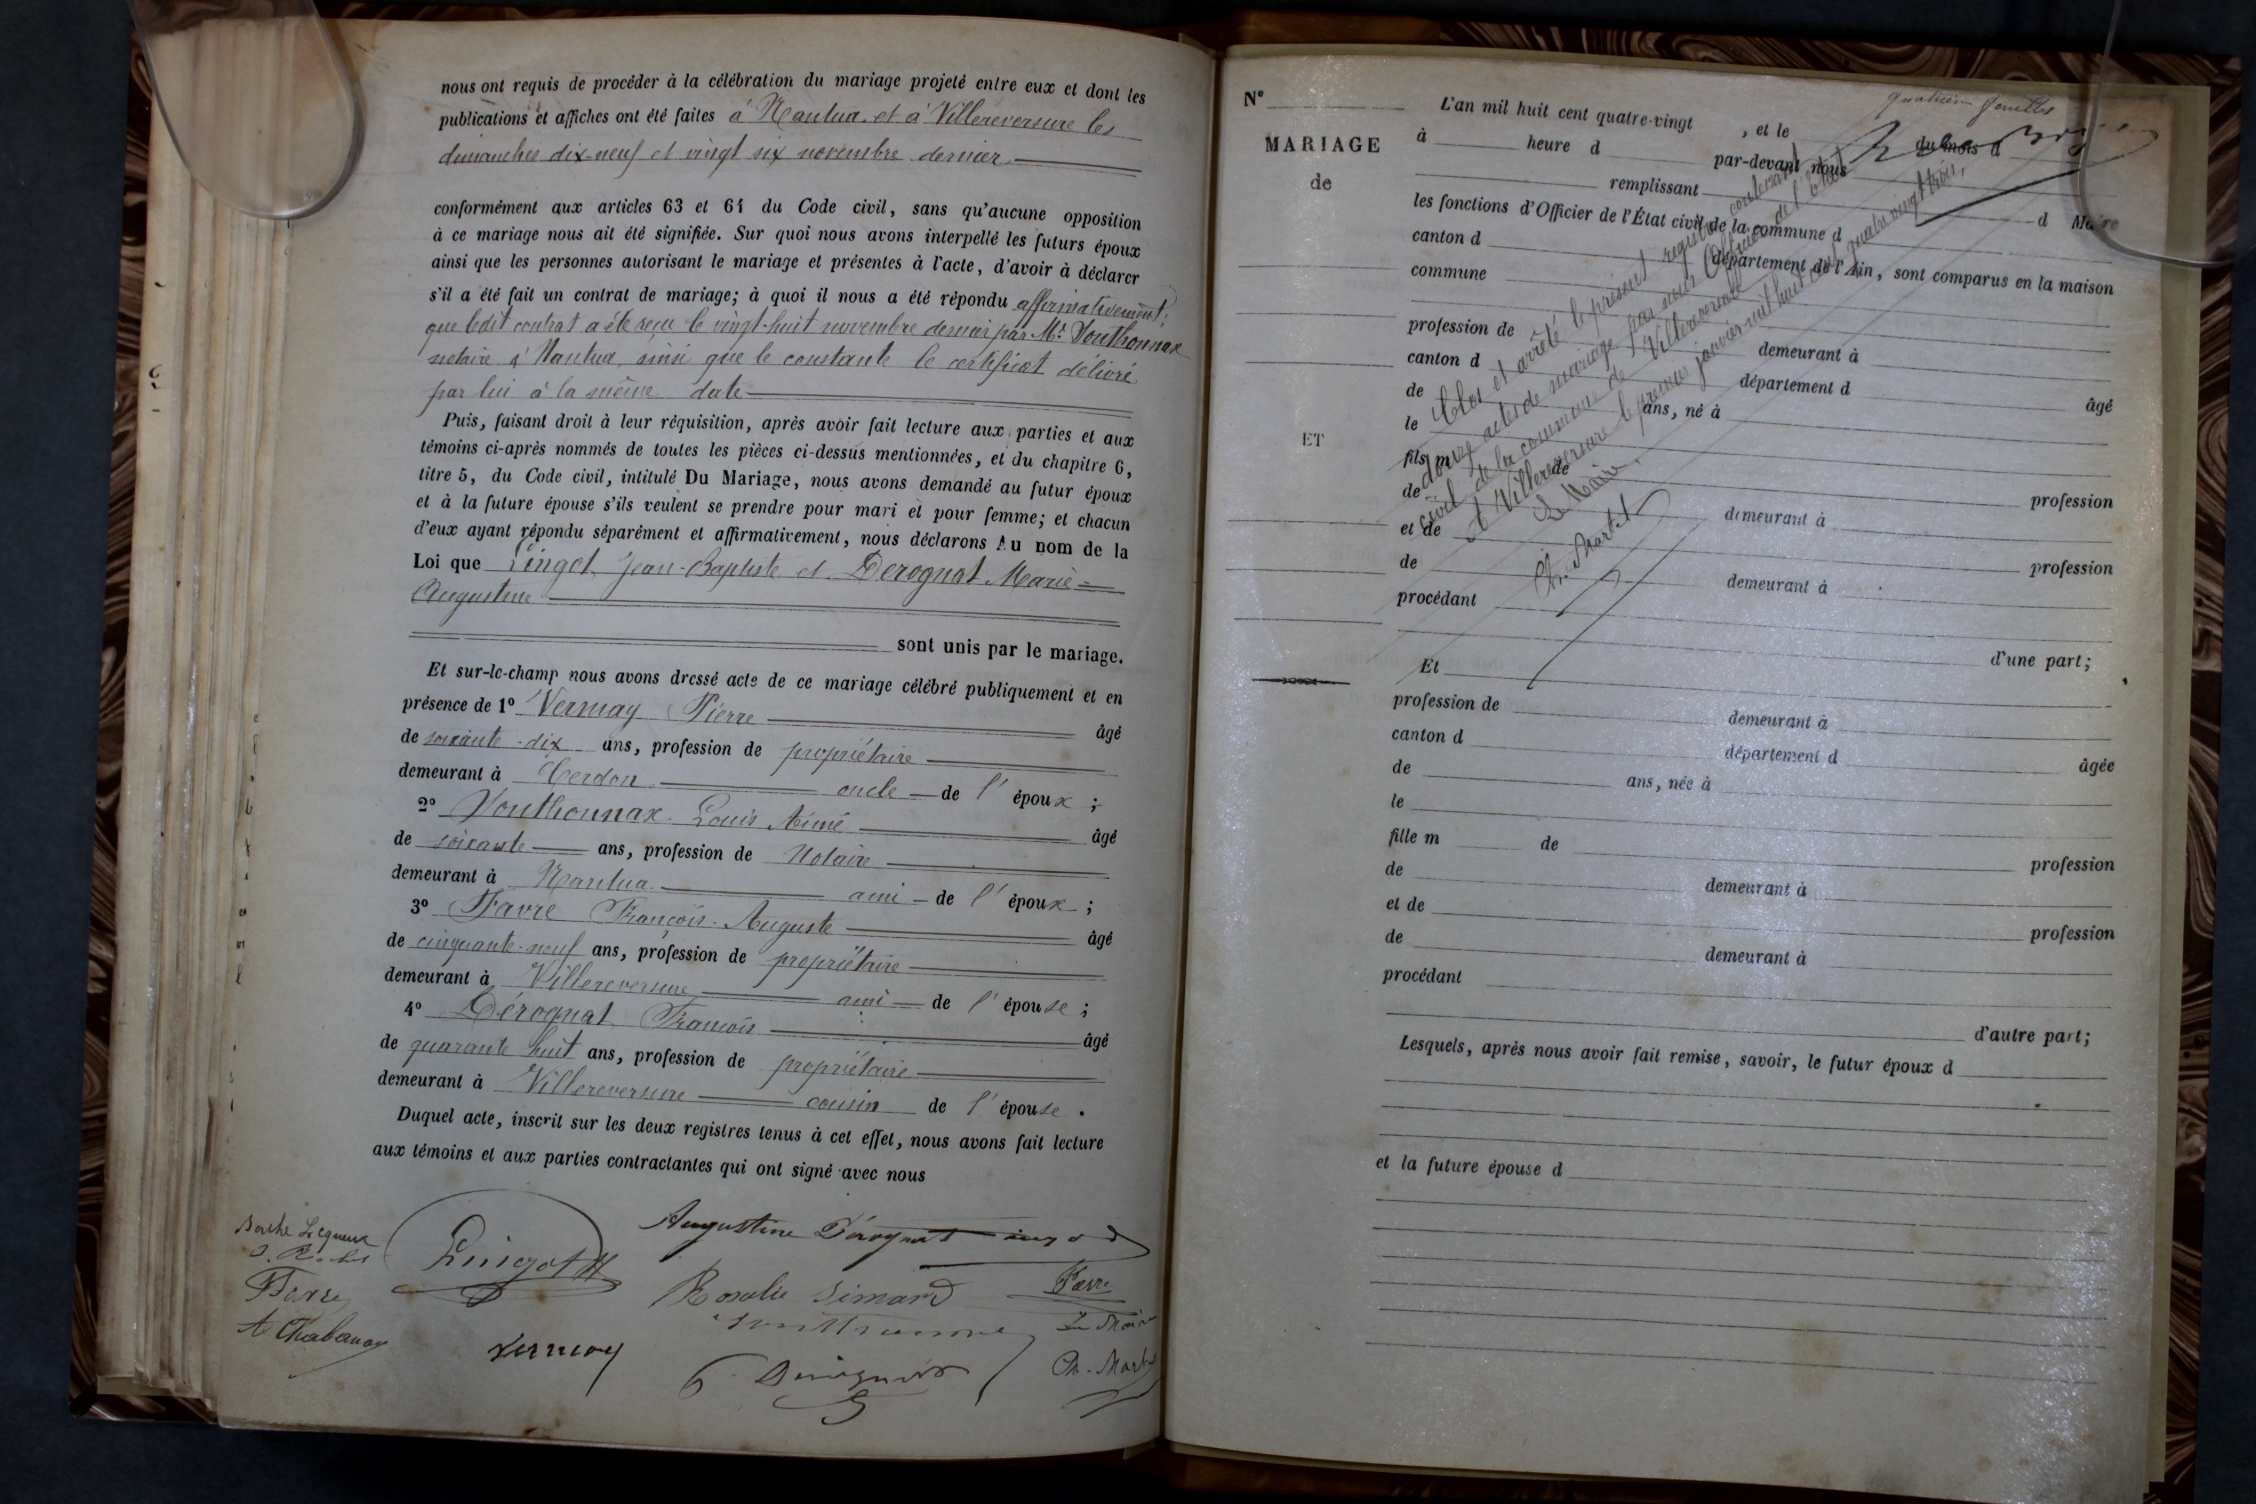 nous ont requis de procéder à la célébration du mariage projeté entre eux et dont les
publications et affiches ont été faites à Nantua et à Villereversure les
dimanches dix-neuf et vingt six novembre dernier
conformément aux articles 63 et 64 du Code civil, sans qu'aucune opposition
à ce mariage nous ait été signifiée. Sur quoi nous avons interpellé les futurs époux
ainsi que les personnes autorisant le mariage et présentes à l'acte, d'avoir à déclarer
s'il a été fait un contrat de mariage; à quoi il nous a été répondu affirmativement;
que ledit contrat a été reçu le vingt-huit novembre dernier par Me Jouthonnax
notaire à Nantua, ainsi que le constante le certificat délivré
par lui à la même date
Puis, faisant droit à leur réquisition, après avoir fait lecture aux parties et aux
témoins ci-après nommés de toutes les pièces ci-dessus mentionnées, et du chapitre 6,
titre 5, du Code civil, intitulé Du Mariage, nous avons demandé au futur époux
et à la future épouse s'ils veulent se prendre pour mari et pour femme; et chacun
d'eux ayant répondu séparément et affirmativement, nous déclarons Au nom de la
Loi que Lingot Jean-Baptiste et Derognat Marie-
Augustine
sont unis par le mariage.
Et sur-le-champ nous avons dressé acte de ce mariage célébré publiquement et en
présence de 1° Vernay Pierre âgé
de soixante-dix ans, profession de propriétaire
demeurant à Cerdon oncle de l'époux ;
2° Jouthounax Louis Aimé âgé
de soixante ans, profession de Notaire
demeurant à Nantua ami de l'époux ;
3° Favre François-Auguste âgé
de cinquante-neuf ans, profession de propriétaire
demeurant à Villereversure ami de l'épouse ;
4° Dérognat François âgé
de quarante huit ans, profession de propriétaire
demeurant à Villereversure cousin de l'épouse .
Duquel acte, inscrit sur les deux registres tenus à cet effet, nous avons fait lecture
aux témoins et aux parties contractantes qui ont signé avec nous
Augustine Dérognat
Lingot
Favre
Rosalie Simard
Favre
A Chabanas
Vernay
Le Maire
Ch. Martel
quatrième feuillet
N°
MARIAGE
de
ET
L'an mil huit cent quatre-vingt , et le du mois d
à heure d par-devant nous
remplissant d Maire
les fonctions d'Officier de l'État civil de la commune d
canton d département de l'Ain, sont comparus en la maison
commune
profession de demeurant à
canton d département d âgé
de ans, né à
le
fils m de
de profession
et de demeurant à
de profession
procédant demeurant à
d'une part;
Et
profession de demeurant à
canton d département d âgée
de ans, née à
le
fille m de
de profession
et de demeurant à
de profession
procédant demeurant à
d'autre part;
Lesquels, après nous avoir fait remise, savoir, le futur époux d
et la future épouse d
Clos et arrêté le présent registre contenant
douze actes de mariage par nous Officier de l'état
civil de la commune de Villereversure
A Villereversure le premier janvier mil huit cent quatre vingt trois,
Le Maire,
Ch. Martel